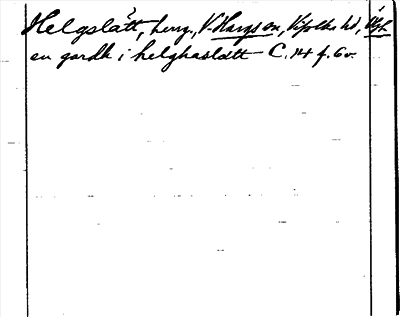 Helgslätt, herrg., V. Harg sn, Vifolka hd, Ög.
en gardh i helghaslätt C. 14 f. 60.